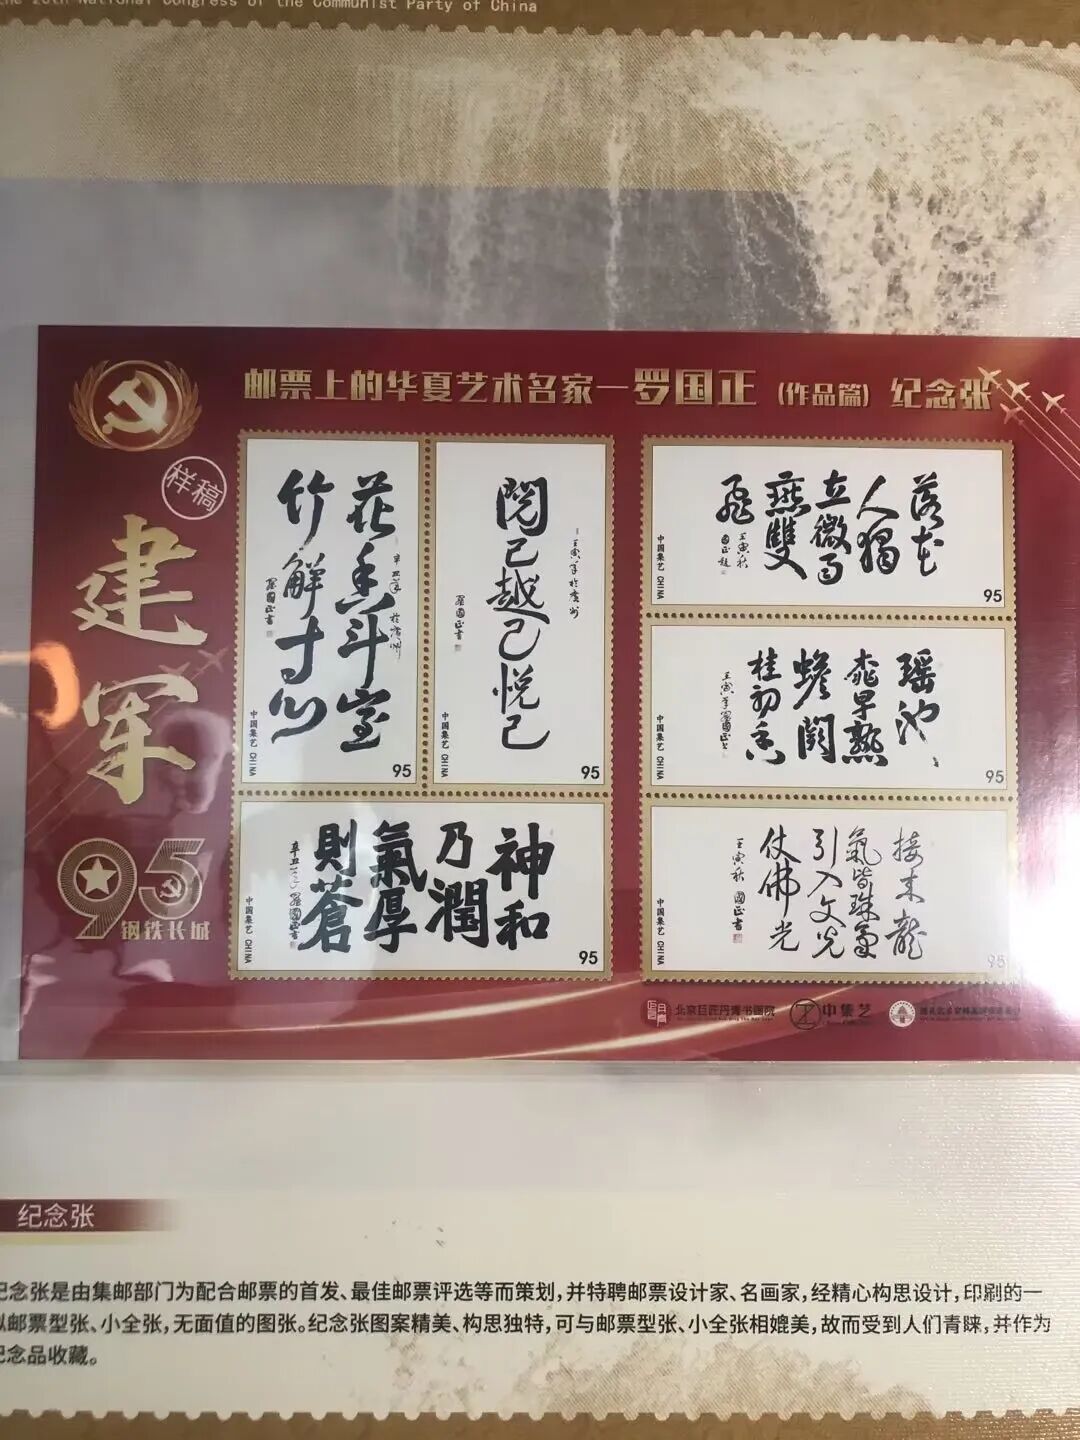 the 20th National Congress of the Communist Party of China
邮票上的华夏艺术名家—罗国正（作品篇）纪念张
样稿
建军
95
钢铁长城
花香斗室
竹解寸心
辛丑年
於广州
羅國正書
中国集艺 CHINA
95
閱己越己悦己
壬寅年於廣州
羅國正書
中国集艺 CHINA
95
神和
乃潤
氣厚
則蒼
辛丑
羅國正書
中国集艺 CHINA
95
落花
人獨
立微雨
燕雙
飛
壬寅秋
國正題
中国集艺 CHINA
95
瑶池
桃早熟
蟾闕
桂初香
壬寅年羅國正書
中国集艺 CHINA
95
接来龍
氣皆珠氣
引入文光
伏佛光
壬寅秋 國正書
中国集艺 CHINA
95
北京巨匠丹青书画院
中集艺
纪念张
纪念张是由集邮部门为配合邮票的首发、最佳邮票评选等而策划,并特聘邮票设计家、名画家,经精心构思设计,印刷的一
邮票型张、小全张,无面值的图张。纪念张图案精美、构思独特,可与邮票型张、小全张相媲美,故而受到人们青睐,并作为
纪念品收藏。